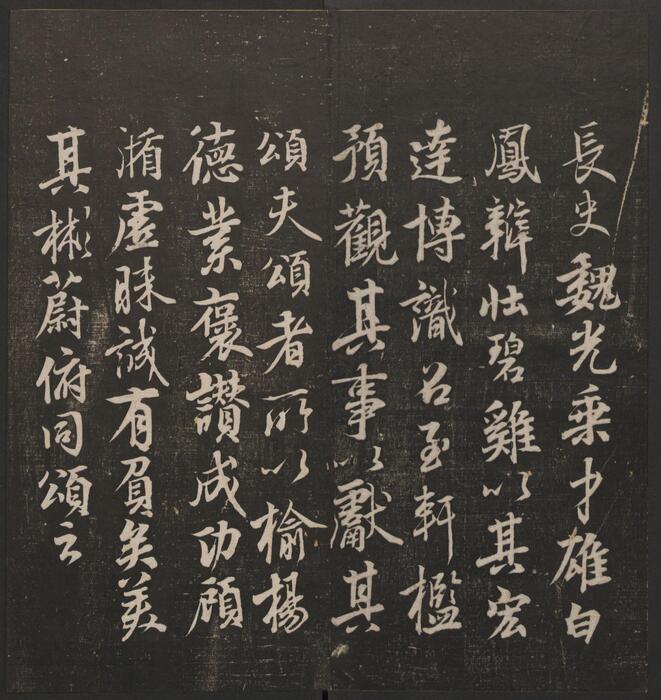 長史魏光乗才雄白
鳳辯壯碧雞以其宏
達博識召至軒檻
預觀其事以獻其
頌夫頌者所以榆揚
德業褒讚成功顧
循虛昧誠有負矣美
其彬蔚俯同頌云